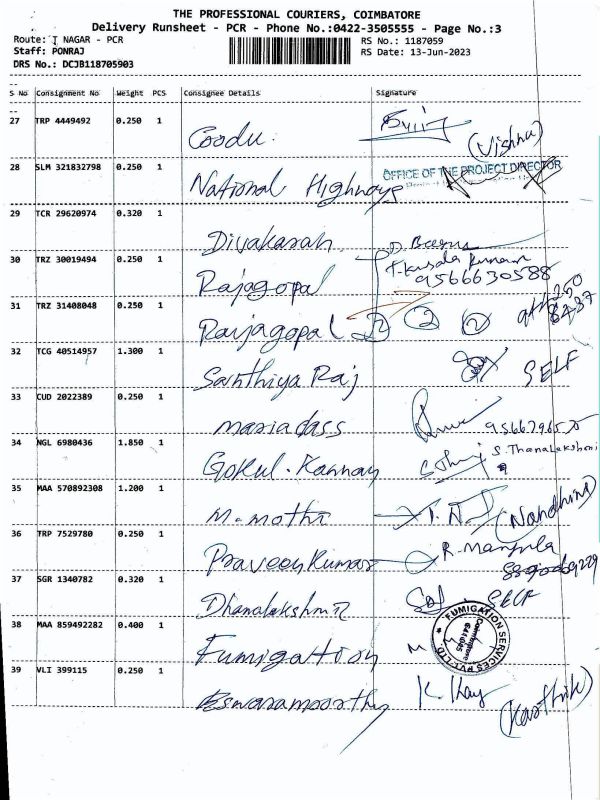 THE PROFESSIONAL COURIERS, COIMBATORE
Delivery Runsheet - PCR - Phone No.:0422-3505555 - Page No.:3
Route: T NAGAR - PCR RS No.: 1187059
Staff: PONRAJ RS Date: 13-Jun-2023
DRS No.: DCJB118705903
S No Consignment No Weight PCS Consignee Details Signature
27 TRP 4449492 0.250 1
Goodu (Vishnu)
28 SLM 321832798 0.250 1 OFFICE OF THE PROJECT DIRECTOR
National Highways
29 TCR 29620974 0.320 1
Divakaran
30 TRZ 30019494 0.250 1
Rajagopal 9566630588
31 TRZ 31408048 0.250 1
Rajagopal 2 2 2
32 TCG 40514957 1.300 1
Santhiya Raj SELF
33 CUD 2022389 0.250 1
mariadass
34 NGL 6980436 1.850 1
Gokul. Kannan S. Thanalakshmi
35 MAA 570892308 1.200 1
M. mothi T. N (Nandhini)
36 TRP 7529780 0.250 1
Praveen Kumar R. Manjula
37 SGR 1340782 0.320 1
Dhanalakshmi SELF
38 MAA 859492282 0.400 1
Fumigation FUMIGATION SERVICES PVT. LTD.
Coimbatore
39 VLI 399115 0.250 1
Eswaramoorthy (Karthik)